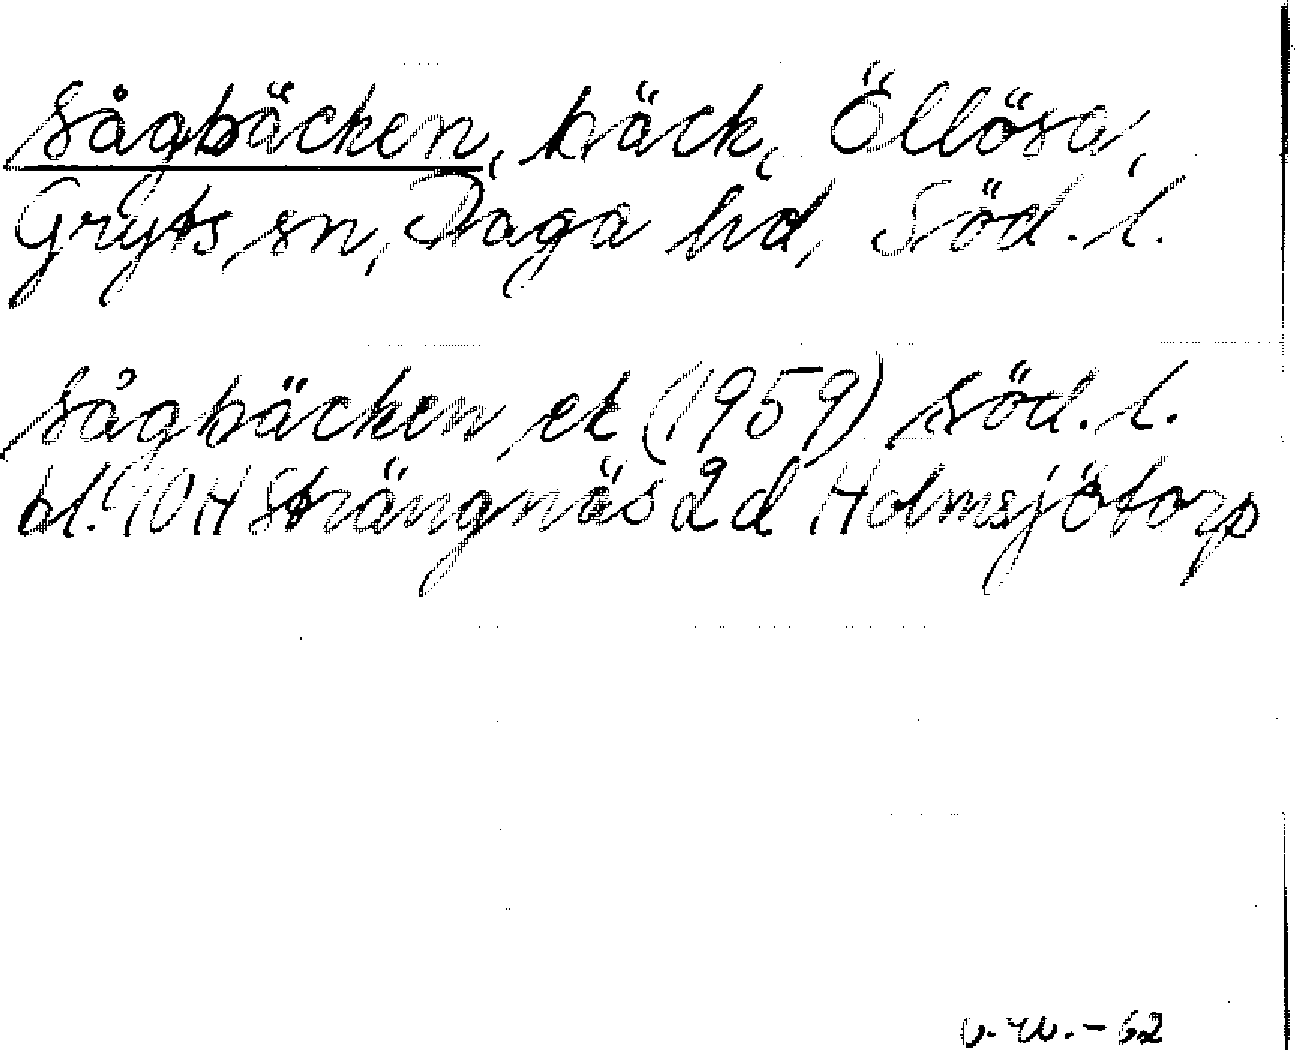 Sågbäcken, bäck, Öllösa,
Gryts sn, Daga hd, Söd. l.
Sågbäcken ek (1959) Söd. l.
bl. 90H Strängnäs 2d Holmsjötorp
v. W. - 62